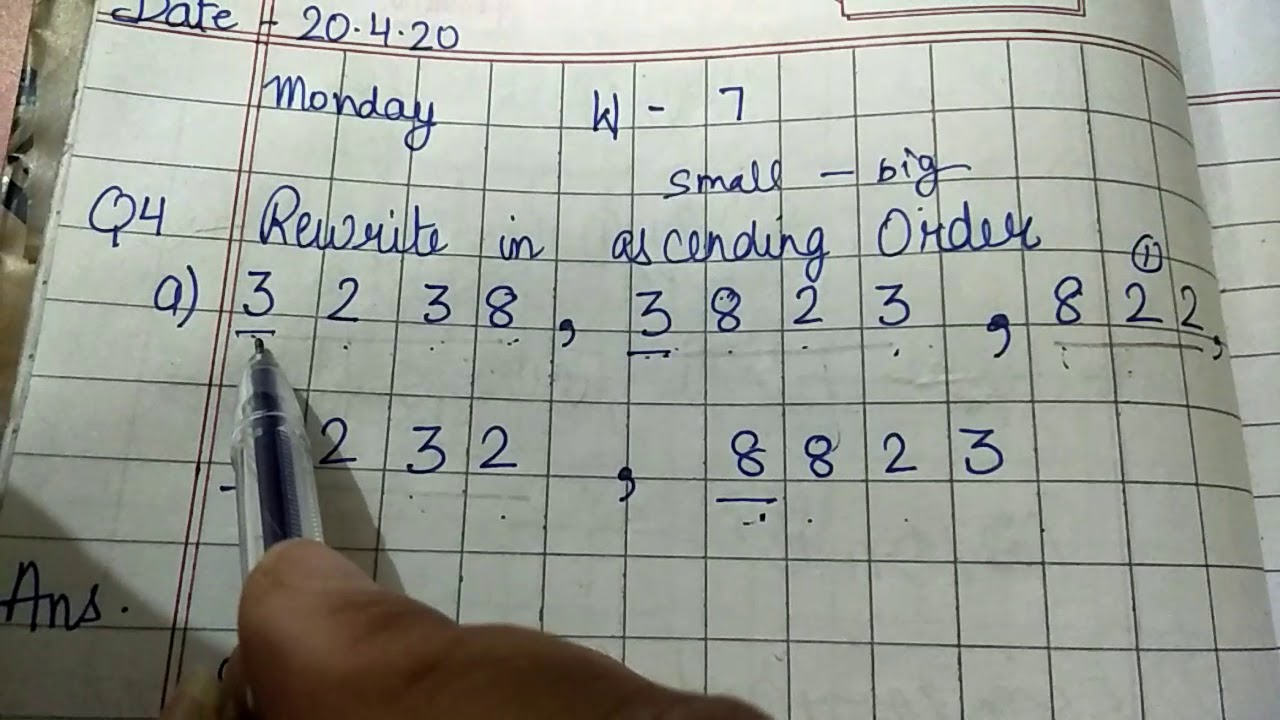 Date - 20.4.20
Monday W - 7
small - big
Q4 Rewrite in ascending Order
a) 3 2 3 8 , 3 8 2 3 , 8 2 2 ,
2 3 2 , 8 8 2 3
Ans.